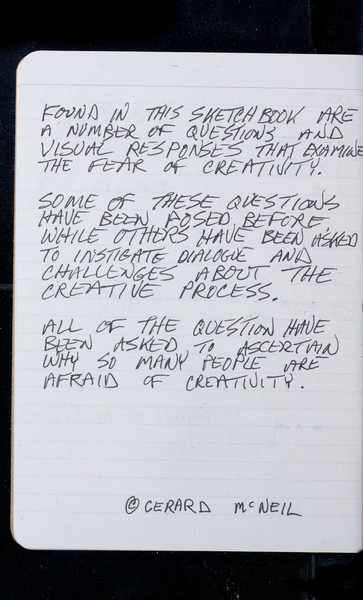 FOUND IN THIS SKETCHBOOK ARE
A NUMBER OF QUESTIONS AND
VISUAL RESPONSES THAT EXAMINE
THE FEAR OF CREATIVITY.
SOME OF THESE QUESTIONS
HAVE BEEN POSED BEFORE
WHILE OTHERS HAVE BEEN ASKED
TO INSTIGATE DIALOGUE AND
CHALLENGES ABOUT THE
CREATIVE PROCESS.
ALL OF THE QUESTION HAVE
BEEN ASKED TO ASCERTAIN
WHY SO MANY PEOPLE ARE
AFRAID OF CREATIVITY.
© GERARD McNEIL